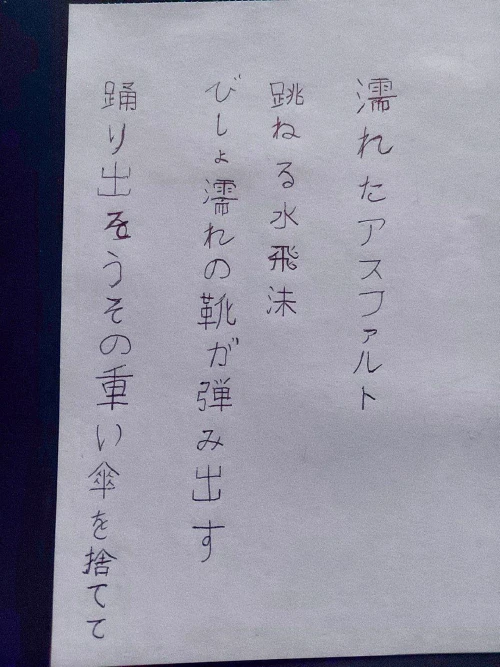 濡れたアスファルト
跳ねる水飛沫
びしょ濡れの靴が弾み出す
踊り出そうその重い傘を捨てて